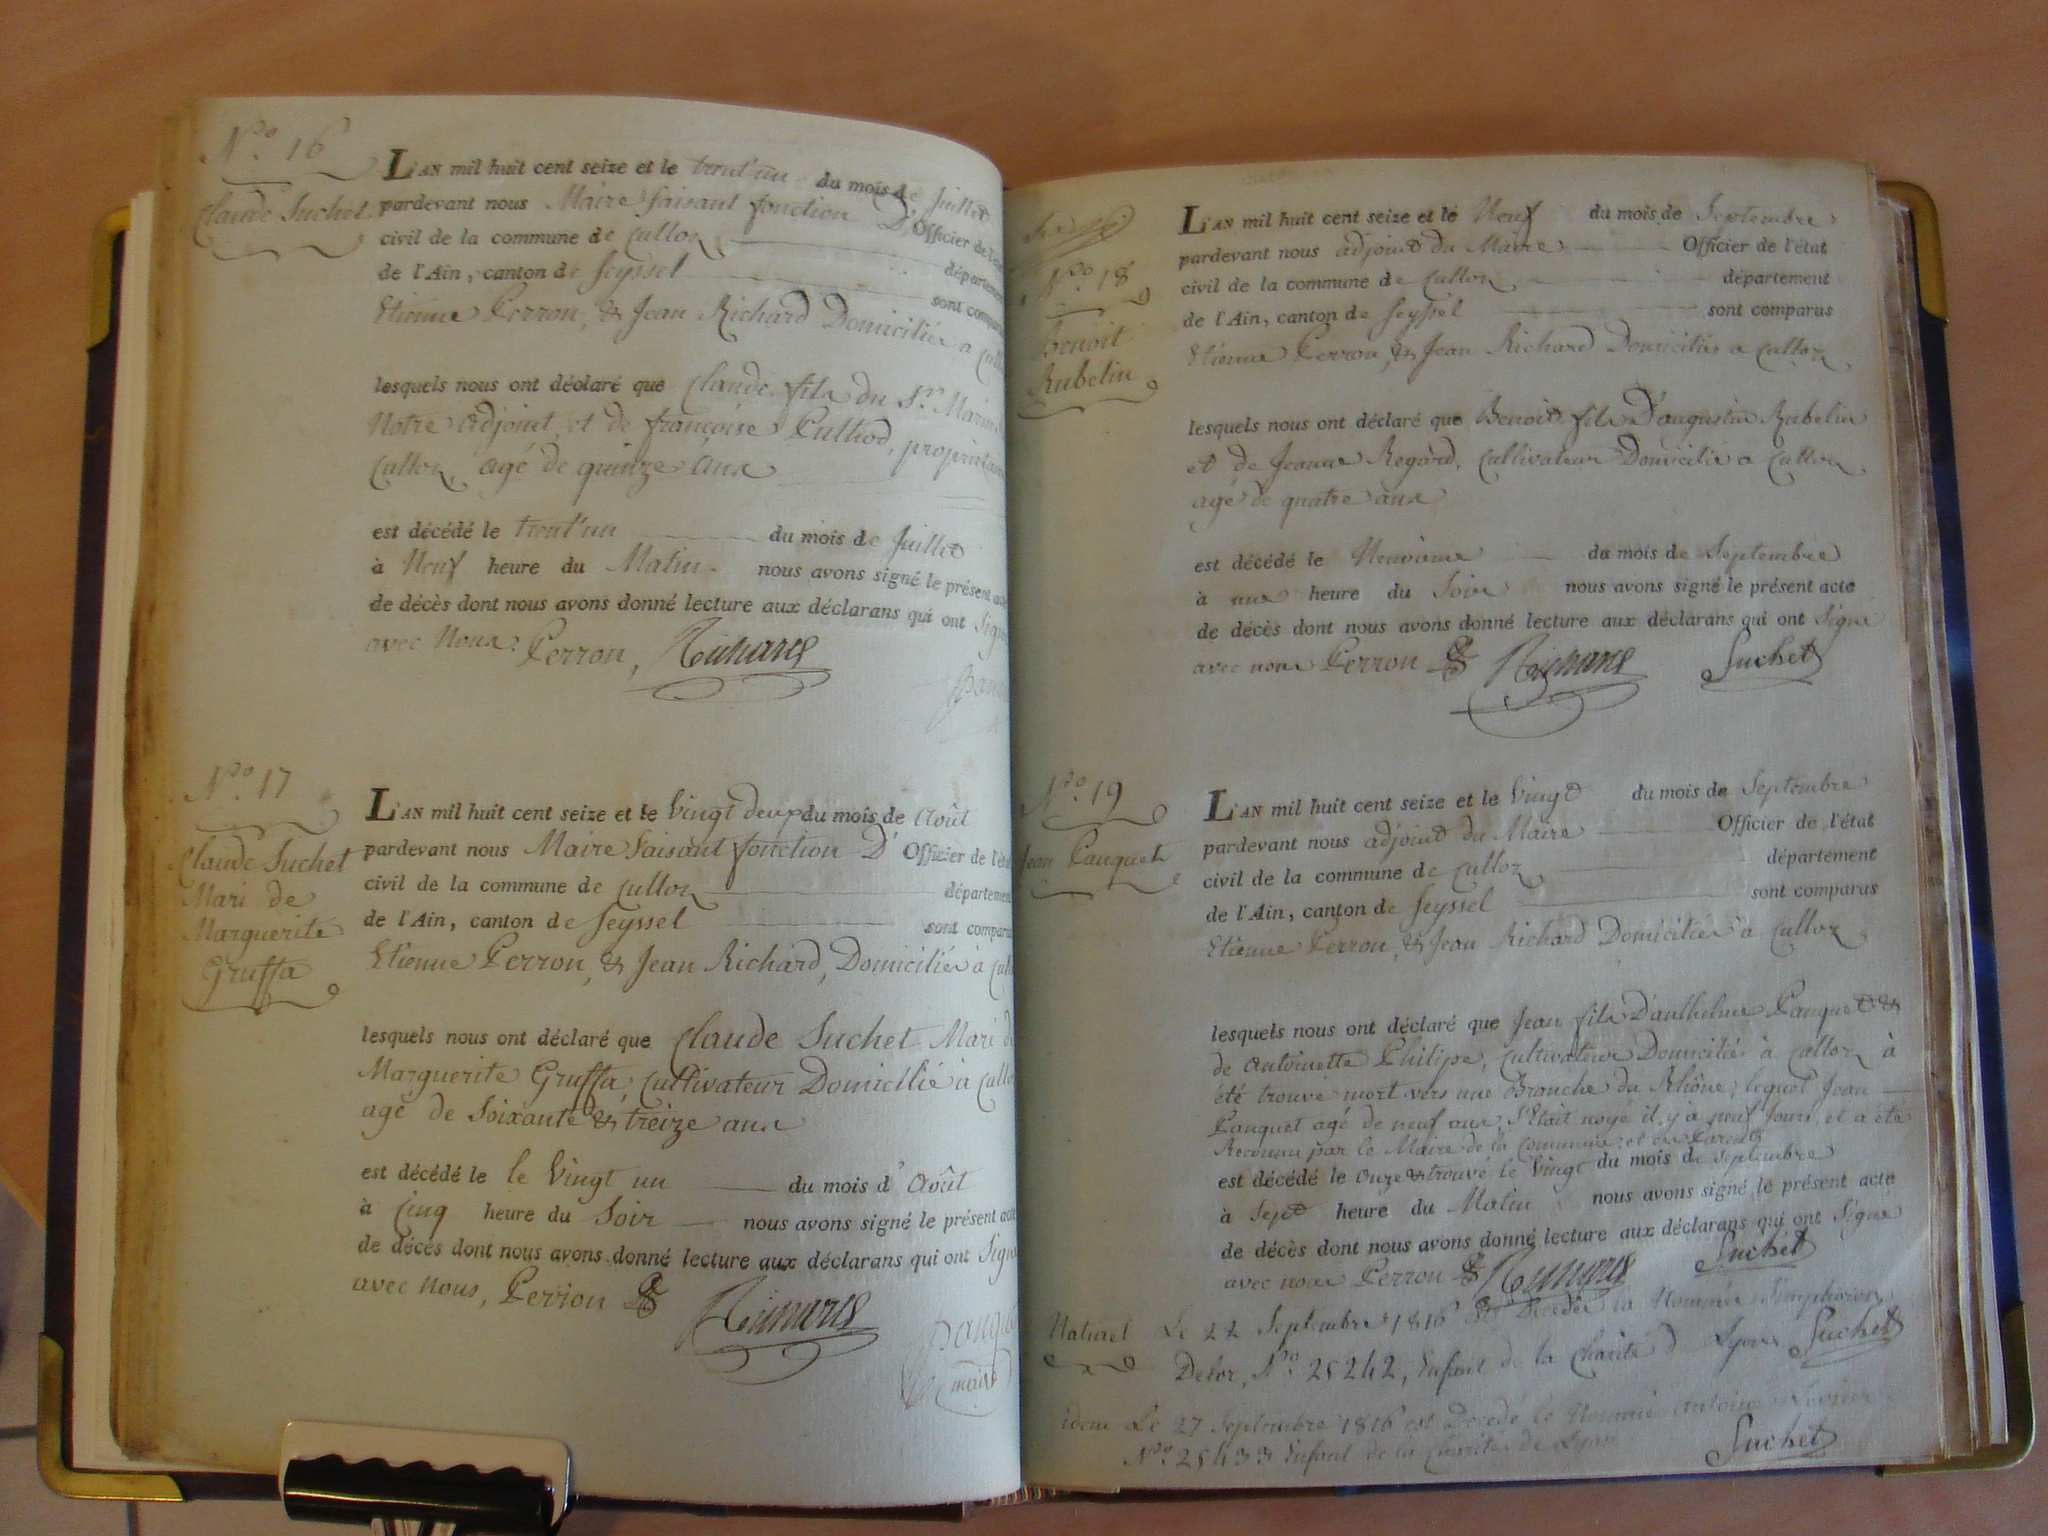 N.º 16
Claude Suchet
L'AN mil huit cent seize et le trent'un du mois de Juillet
pardevant nous Maire faisant fonction D' Officier de l'
civil de la commune de Culloz département
de l'Ain, canton de Seyssel sont comparus
Etienne Perron, & Jean Richard Domiciliés a
lesquels nous ont déclaré que Claude fils du Sr. Marin
Notre adjoint et de françoise Pulliod, propriétaire
Culloz, agé de quinze ans
est décédé le trent'un du mois de Juillet
à Neuf heure du Matin nous avons signé le présent acte
de décès dont nous avons donné lecture aux déclarans qui ont Signé
avec Nous. Perron, Richard
N.º 17
Claude Suchet
Mari de
Marguerite
Gruffa
L'AN mil huit cent seize et le Vingt deux du mois de Août
pardevant nous Maire faisant fonction D' Officier de l'état
civil de la commune de Culloz département
de l'Ain, canton de Seyssel sont comparus
Etienne Perron, & Jean Richard, Domiciliés à
lesquels nous ont déclaré que Claude Suchet Mari de
Marguerite Gruffa, Cultivateur Domicilié à
agé de Soixante & treize ans
est décédé le le Vingt un du mois d' Août
à Cinq heure du Soir nous avons signé le présent acte
de décès dont nous avons donné lecture aux déclarans qui ont Signé
avec Nous, Perron Richard
maire
N.º 18
Benoit
Rubelin
L'AN mil huit cent seize et le Neuf du mois de Septembre
pardevant nous adjoint du Maire Officier de l'état
civil de la commune de Culloz département
de l'Ain, canton de Seyssel sont comparus
Etienne Perron, & Jean Richard Domiciliés a Culloz
lesquels nous ont déclaré que Benoit fils D'augustin Rubelin
et de Jeanne Regard, Cultivateur Domicilié a Culloz
agé de quatre ans
est décédé le Neuvieme du mois de Septembre
à une heure du Soir nous avons signé le présent acte
de décès dont nous avons donné lecture aux déclarans qui ont Signé
avec nous Perron Richard Suchet
N.º 19
Jean Pauquet
L'AN mil huit cent seize et le Vingt du mois de Septembre
pardevant nous adjoint du Maire Officier de l'état
civil de la commune de Culloz département
de l'Ain, canton de Seyssel sont comparus
Etienne Perron, & Jean Richard Domiciliés à Culloz
lesquels nous ont déclaré que Jean fils D'anthelme Pauquet &
de Antoinette Philipe, Cultivateur Domiciliés à Culloz à
été trouvé mort vers une Branche du Rhône, lequel Jean
Pauquet agé de neuf ans, S'Etait noyé il y a neuf Jours, et a été
Reconnu par le Maire de la Commune et ses Parents
est décédé le onze & trouvé le Vingt du mois de Septembre
à Sept heure du Matin nous avons signé le présent acte
de décès dont nous avons donné lecture aux déclarans qui ont Signé
avec nous Perron Richard Suchet
Naturel Le 22 Septembre 1816 est Décédée la Nommée Simphorien
Delor, N.º 25242, Enfant de la Charité d Lyon Suchet
idem Le 27 Septembre 1816 est Décédé le Nommé Antoine
N.º 25433 Enfant de la Charité de Lyon Suchet